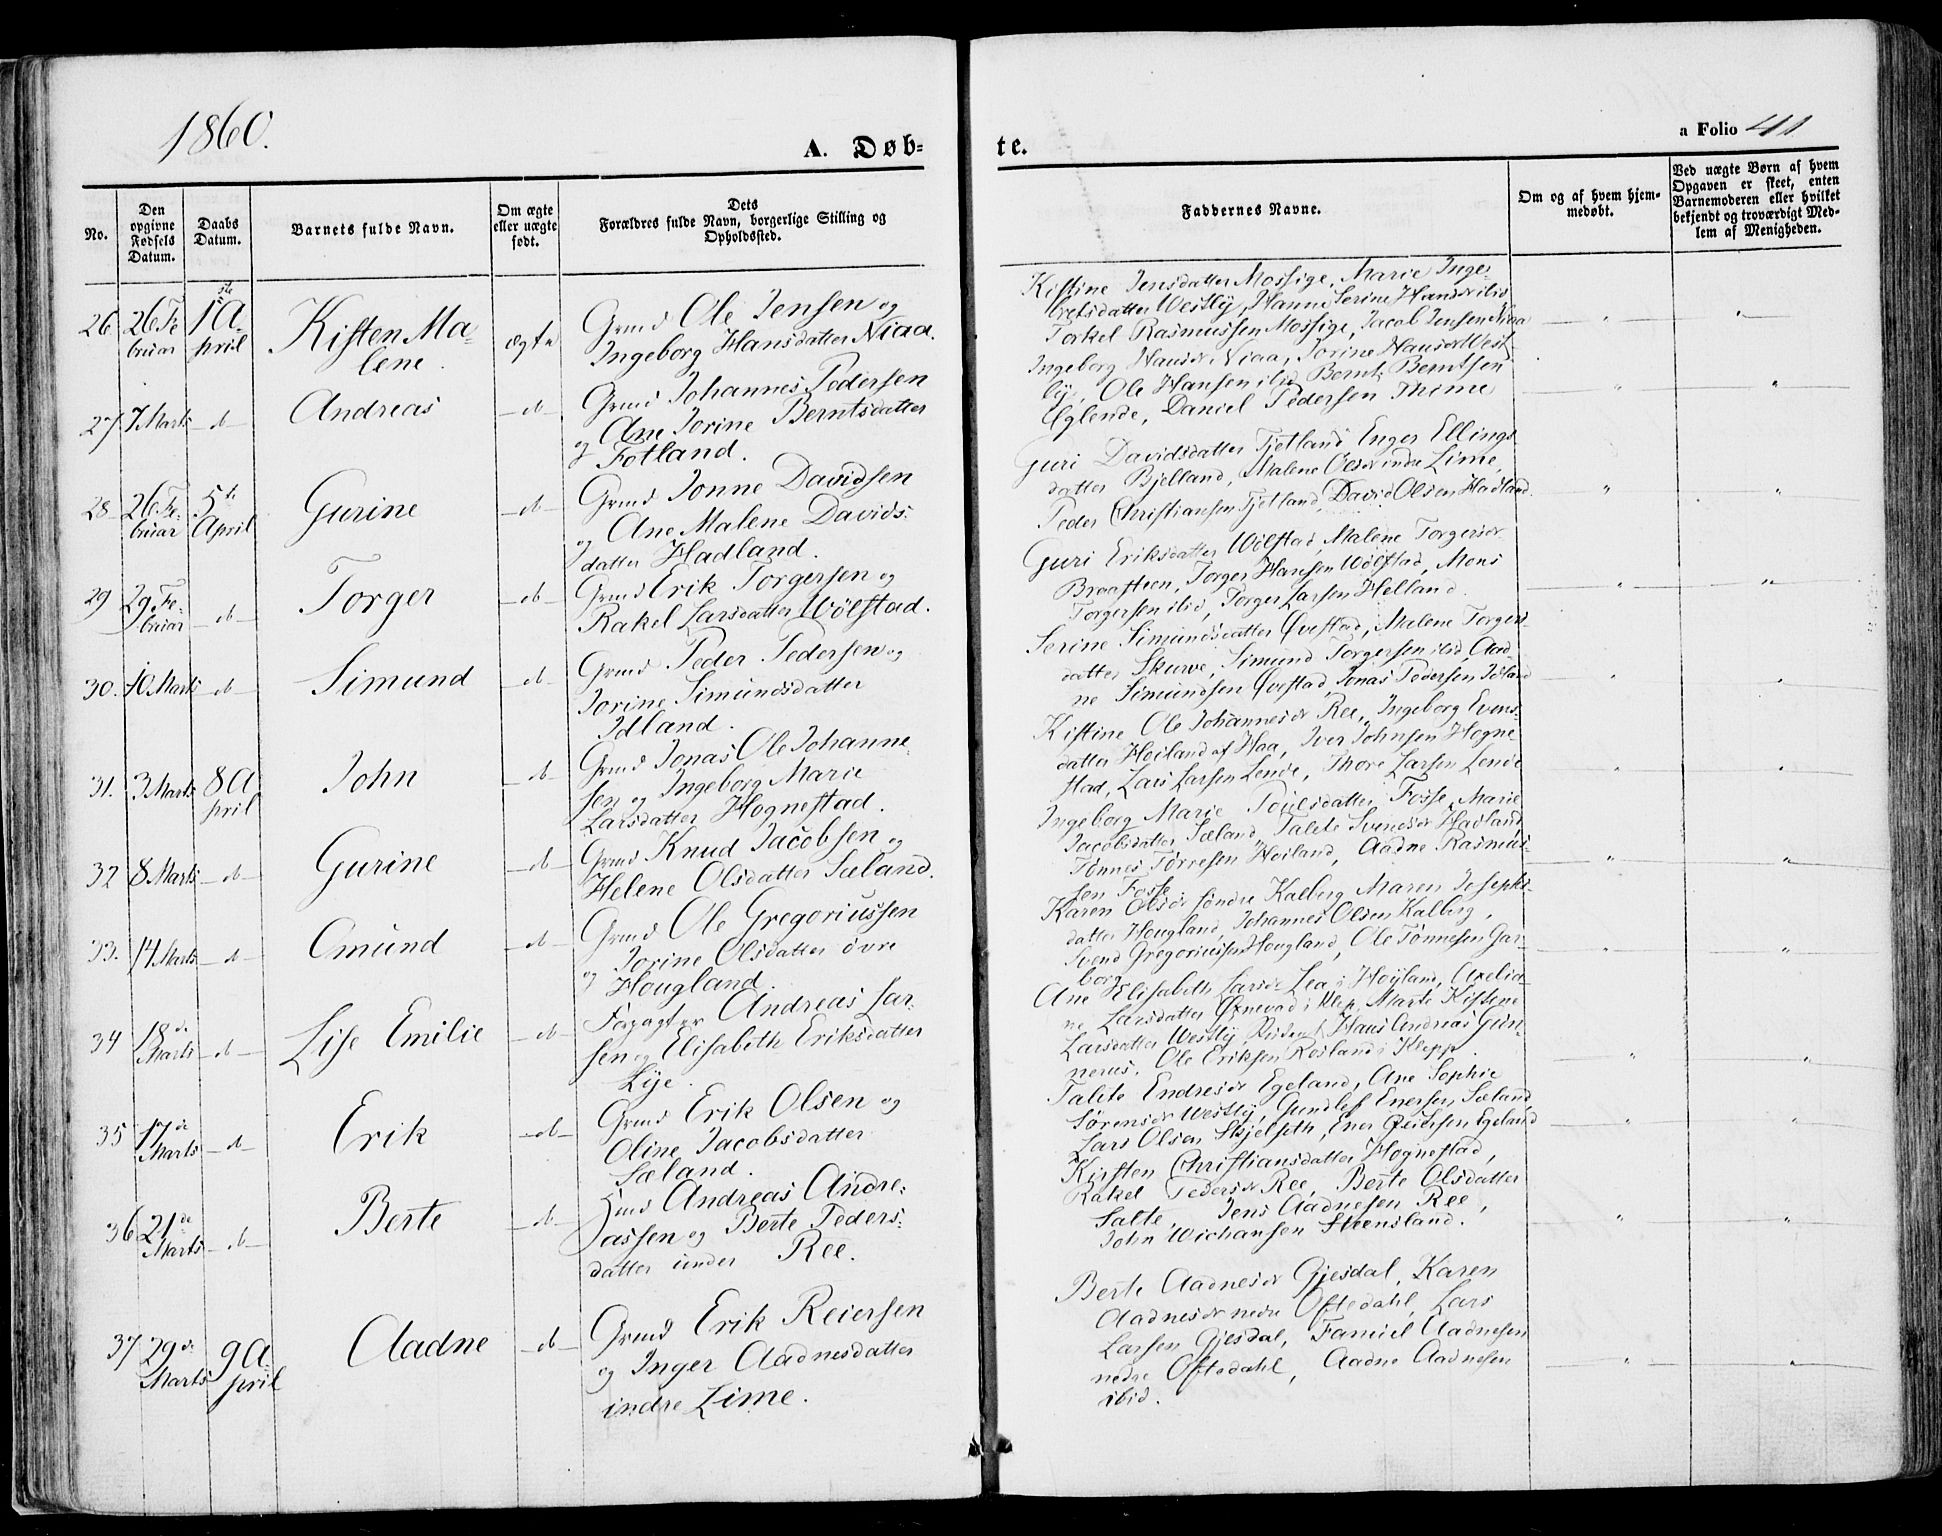 1860.
A. Døb-
te.
a Folio 41
No.
Den opgivne Fødsels Datum.
Daabs Datum.
Barnets fulde Navn.
Om ægte eller uægte født.
Dets Forældres fulde Navn, borgerlige Stilling og Opholdssted.
Faddernes Navne.
Om og af hvem hjemmedøbt.
Ved uægte Børn af hvem Opgaven er skeet, enten Barnemoderen eller hvilket bekjendt og troværdigt Medlem af Menigheden.
26 26 Februar 1ste April Kisten Malene ægte
Grmd Ole Jensen og
Ingeborg Hansdatter Niaa.
Kistine Jensdatter Mossige, Marie Inge-
bretsdatter Westly, Hanne Serine Hansdr ibid
Torkel Rasmussen Mossige, Jacob Jensen Niaa
27 7 Marts do Andreas do
Grmd Johannes Pedersen
og Ane Jorine Berntsdatter
Fotland.
Ingeborg Hansdr Niaa, Jorine Hansdr West
lye, Ole Hansen ibid Bernt Berntsen
Eglende, Daniel Pedersen Thime
28 26 Februar 5te April Gurine do
Grmd Jonne Davidsen
og Ane Malene Davids-
datter Hadland.
Guri Davidsdatter Tjetland Enger Ellings
datter Bjelland, Malene Olsdr indre Lime,
Peder Christiansen Tjetland, David Olsen Hadland.
29 29 Februar do Torger do
Grmd Erik Torgersen og
Rakel Larsdatter Wølstad.
Guri Eriksdatter Wølstad, Malene Torgersdr
Braasteen, Torger Hansen Wølstad, Mons
Torgersen ibid, Torger Larsen Helland.
30. 10 Marts do Simund do
Grmd Peder Pedersen og
Jorine Simundsdatter
Idland.
Serine Simundsdatter Øvestad, Malene Torgers
datter Skurve, Simund Torgersen ibid, Aad-
ne Simundsen Øvestad Jonas Pedersen Idland
31. 3 Marts 8 April John do
Grmd Jonas Ole Johanne-
sen og Ingeborg Marie
Larsdatter Hognestad.
Kistine Ole Johannesdr Ree, Ingeborg Evens-
datter Hoiland af Haa, Iver Johnsen Hogne
stad, Lars Larsen Lende, Thore Larsen Lende
32 8 Marts do Gurine do
Grmd Knud Jacobsen og
Helene Olsdatter Sæland.
Ingeborg Marie Poulsdatter Fosse, Marie
Jacobsdatter Sæland, Talite Svendsdr Hadland,
Tønnes Tørresen Hoiland, Aadne Rasmus-
sen Fosse
33. 14 Marts do Omund do
Grmd Ole Gregoriussen
og Jorine Olsdatter øvre
Hougland.
Karen Olsdr søndre Kalberg Maren Josephs-
datter Hougland, Johannes Olsen Kalberg,
Svend Gregoriussen Hougland, Ole Tønnesen Gar-
borg
34 18de Marts do Lise Emilie do
Forpagter Andreas Lar-
sen og Elisabeth Eriksdatter
Lye.
Ane Elisabeth Larsdr Lea i Høyland, Axelia-
ne Larsdatter Ørnevad i Klep, Marte Kistene
Larsdatter Westly, Hans Andreas Gun-
nerus, Ole Eriksen Rosland i Klepp.
35 17de Marts do Erik do
Grmd Erik Olsen og
Oline Jacobsdatter
Sæland.
Talite Endresdr Egeland, Ane Sophie
Sørensdr Westly, Gundlef Enersen Sæland
Lars Olsen Skjelseth, Ener Pedersen Egeland
36 21de Marts do Berte do
Hmd Andreas Andre-
assen og Berte Peders-
datter under Ree.
Kirsten Christiansdatter Hognestad,
Rakel Pedersdr Ree, Berte Olsdatter
Salte, Jens Aadnesen Ree,
John Wichansen Steensland.
37 29de Marts 9 April Aadne do
Grmd Erik Reiersen
og Inger Aadnesdatter
indre Lime.
Berte Aadnesdr Gjesdal, Karen
Aadnesdr nedre Oftedahl, Lars
Larsen Gjesdal, Famiel Aadnesen
nedre Oftedahl, Aadne Aadnesen
ibid.